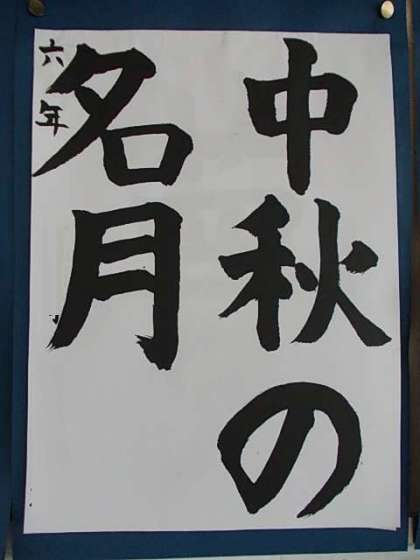 中秋の
名月
六年